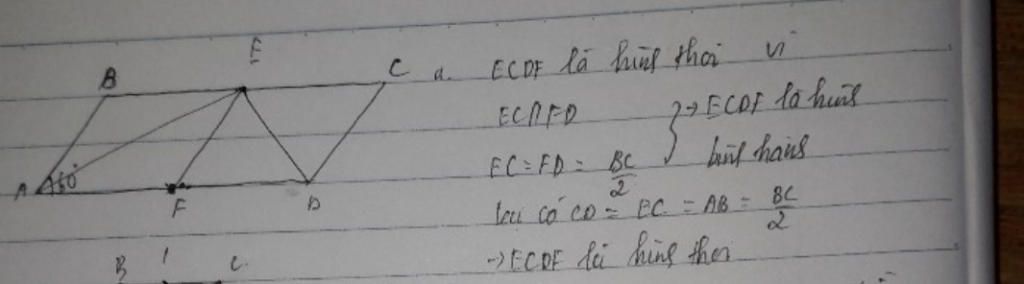 E
B
C
A
60°
F
D
a. ECDF là hình thoi vì
EC//FD
EC = FD = BC/2
} → ECDF là hình
bình hành
lại có CD = EC = AB = BC/2
→ ECDF là hình thoi
B
C